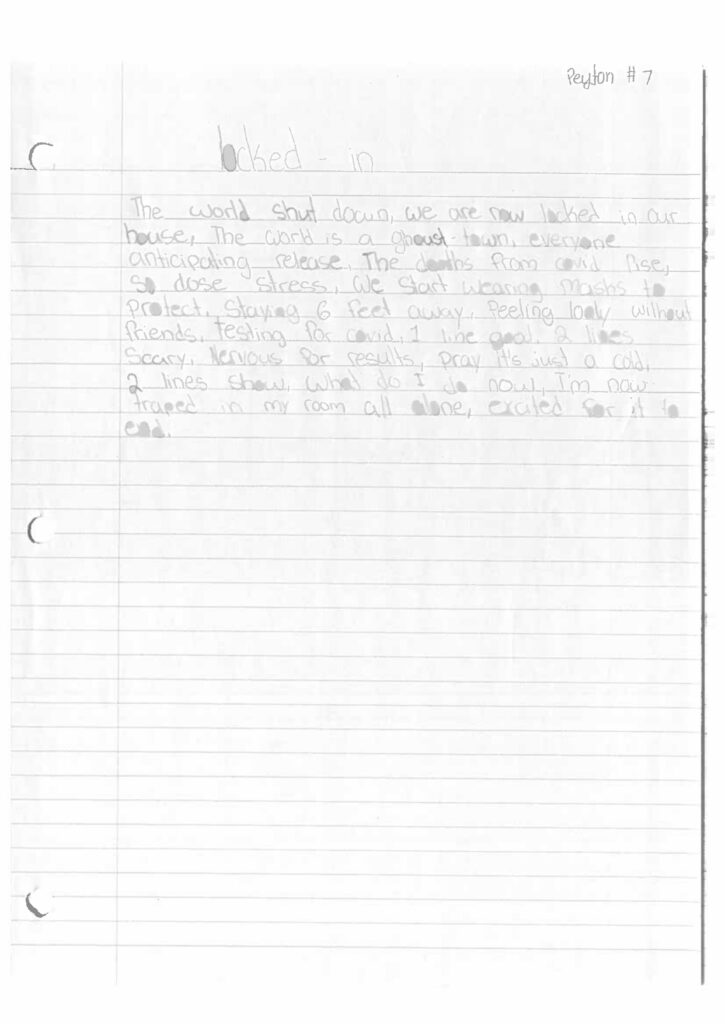 Peyton # 7
locked - in
The world shut down, we are now locked in our
house, The world is a ghoust-town, everyone
anticipating release. The deaths from covid rise,
so dose stress, We start wearing masks to
protect. Staying 6 feet away. Feeling lonly without
friends. testing for covid, 1 line good. 2 lines
Scary. Nervous for results, pray it's just a cold.
2 lines show. What do I do now. I'm now
traped in my room all alone, excited for it to
end.